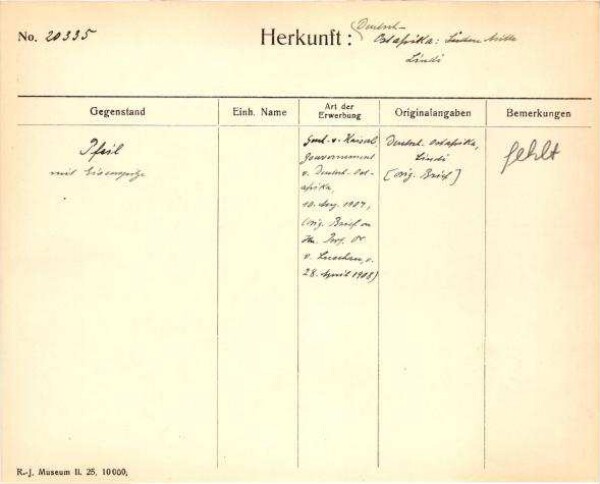 No. 20335
Herkunft: Deutsch-
Ostafrika: Süden Mitte
Lindi
Gegenstand Einh. Name Art der Erwerbung Originalangaben Bemerkungen
Pfeil
mit Eisenspitze
v. Kaiserl.
Gouvernement
v. Deutsch. Ost-
afrika,
10. Aug. 1907,
(orig. Brief an
Hn. Prof. Dr.
v. Luschan, v.
28. April 1908)
Deutsch. Ostafrika,
Lindi
[orig. Brief]
fehlt
R.-J. Museum II. 25. 10000.